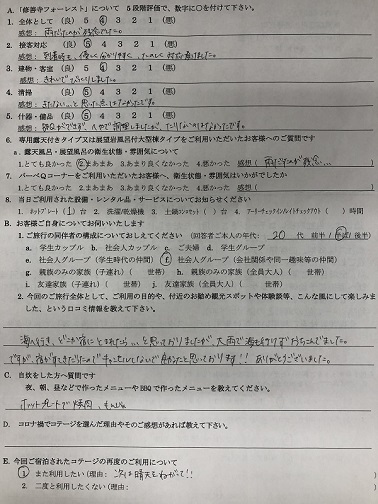 A.「修善寺フォーレスト」について 5段階評価で、数字に○を付けて下さい。
1. 全体として (良) 5 4 3 2 1 (悪)
感想: 雨だったのが残念でした。
2. 接客対応 (良) 5 4 3 2 1 (悪)
感想:
3. 建物・客室 (良) 5 4 3 2 1 (悪)
感想: きれいでびっくりしました。
4. 清掃 (良) 5 4 3 2 1 (悪)
感想: きたない、、と思った所はなかったです。
5. 什器・備品 (良) 5 4 3 2 1 (悪)
感想:
6. 専用露天付きタイプ又は展望風呂付大型棟タイプをご利用いただいたお客様へのご質問です
a. 露天風呂・展望風呂の衛生状態・雰囲気について
1.とても良かった 2.まあまあ 3.あまり良くなかった 4.悪かった 感想(雨だったのが残念...)
7. バーベQコーナーをご利用いただいたお客様へ、衛生状態・雰囲気はいかがでしたか
1.とても良かった 2.まあまあ 3.あまり良くなかった 4.悪かった 感想( )
8. 当日ご利用された設備・レンタル品・サービスについてお知らせください
1. ホットプレート(1)台 2. 洗濯/乾燥機 3. 土鍋コンセット( )台 4. アーリーチェックイン/レイトチェックアウト( )時間
B. お客様ご自身についてお伺いいたします
1. ご旅行の同伴者の構成についておしえてください (回答者ご本人の年代: 20 代 前半/中頃/後半)
a. 学生カップル b. 社会人カップル c. ご夫婦 d. 学生グループ
e. 社会人グループ(学生時代の仲間) f. 社会人グループ(会社関係や同一趣味等の仲間)
g. 親族のみの家族(子連れ)( 世帯) h. 親族のみの家族(全員大人)( 世帯)
i. 友達家族(子連れ)( 世帯) j. 友達家族(全員大人)( 世帯)
2. 今回のご旅行全体として、ご利用の目的や、付近のお勧め観光スポットや体験談等、こんな風にして楽しみま
した、という口コミ情報を教えて下さい。
海へ行き、どこか宿にとまれたら、、と思っておりましたが、大雨で海も行けずおちこんでました。
ありがとうございました。
C. 自炊をした方へ質問です
夜、朝、昼などで作ったメニューやBBQで作ったメニューを教えてください。
ホットプレートで焼肉、
D. コロナ禍でコテージを選んだ理由やそのご感想があれば教えて下さい。
E. 今回ご宿泊されたコテージの再度のご利用について
1. また利用したい(理由: 次は晴天をねがって!!
2. 二度と利用したくない(理由: